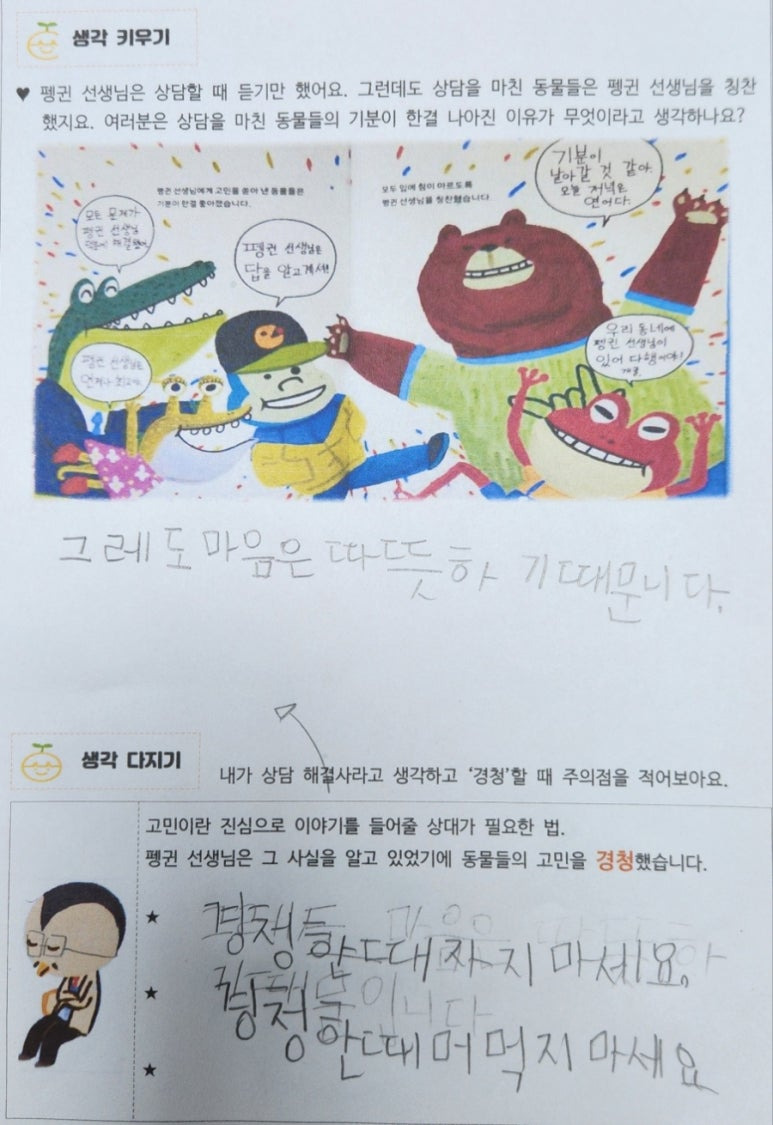 생각 키우기
♥ 펭귄 선생님은 상담할 때 듣기만 했어요. 그런데도 상담을 마친 동물들은 펭귄 선생님을 칭찬
했지요. 여러분은 상담을 마친 동물들의 기분이 한결 나아진 이유가 무엇이라고 생각하나요?
펭귄 선생님에게 고민을 쏟아 낸 동물들은
기분이 한결 좋아졌습니다.
모두 문제가
펭귄 선생님
덕에 해결됐어.
펭귄 선생님은
답을 알고 계셔!
펭귄 선생님은
언제나 최고
모두 입에 침이 마르도록
펭귄 선생님을 칭찬했습니다.
기분이
날아갈 것 같아.
오늘 저녁은
연어다.
우리 동네에
펭귄 선생님이
있어 다행이야!
개굴.
그레도 마음은 따뜻하 기때문니다.
생각 다지기
내가 상담 해결사라고 생각하고 '경청'할 때 주의점을 적어보아요.
고민이란 진심으로 이야기를 들어줄 상대가 필요한 법.
펭귄 선생님은 그 사실을 알고 있었기에 동물들의 고민을 경청했습니다.
★ 경청 할때 자지 마세요.
★ 경청 할때 머 먹지 마세요
★